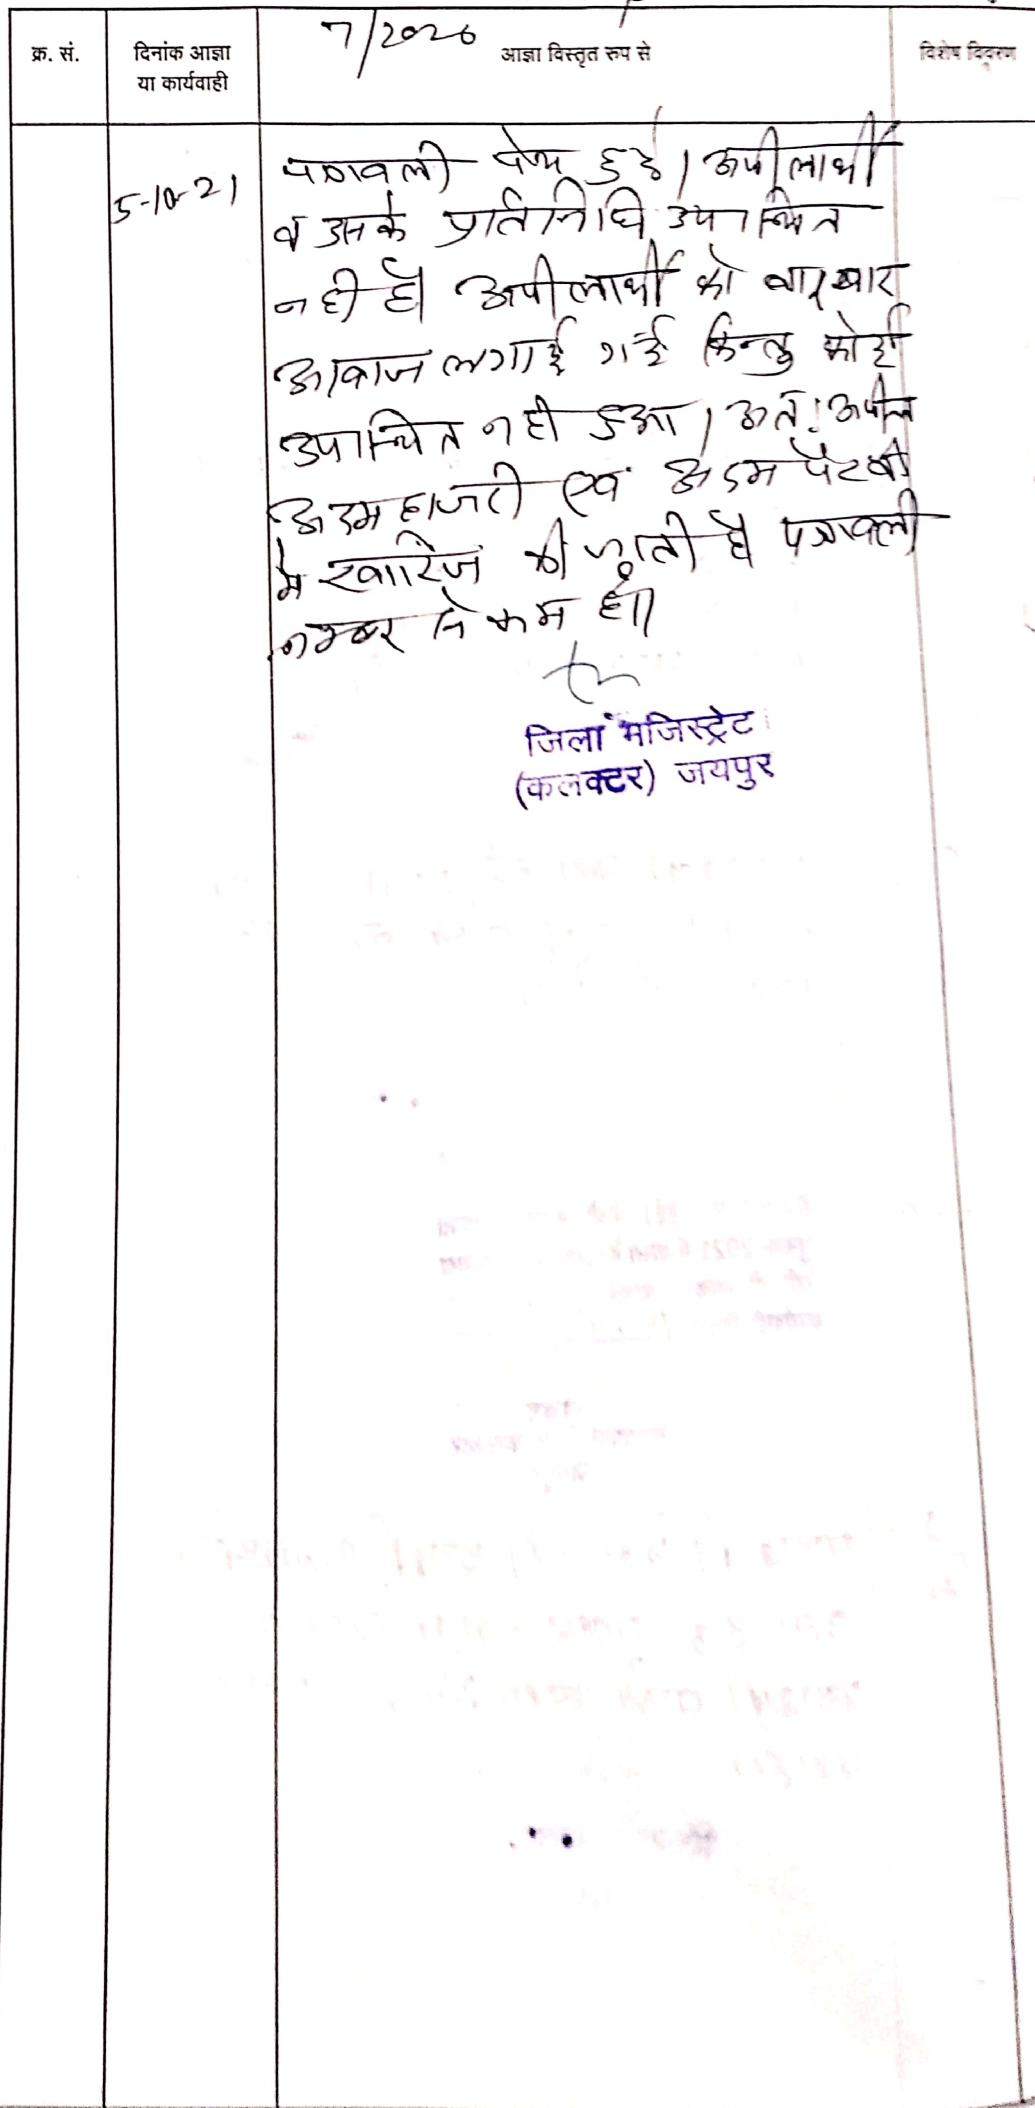 7/2020
क्र. सं.
दिनांक आज्ञा
या कार्यवाही
आज्ञा विस्तृत रुप से
विशेष विवरण
5-10-21
पत्रावली पेश हुई। अपीलार्थी
व उसके प्रतिनिधि उपस्थित
नही है। अपीलार्थी को बार बार
आवाज लगाई गई किन्तु कोई
उपस्थित नही हुआ। अतः अपील
अदम हाजरी एवं अदम पैरवी
मे खारिज की जाती है पत्रावली
नम्बर से कम हो।
जिला मजिस्ट्रेट
(कलक्टर) जयपुर